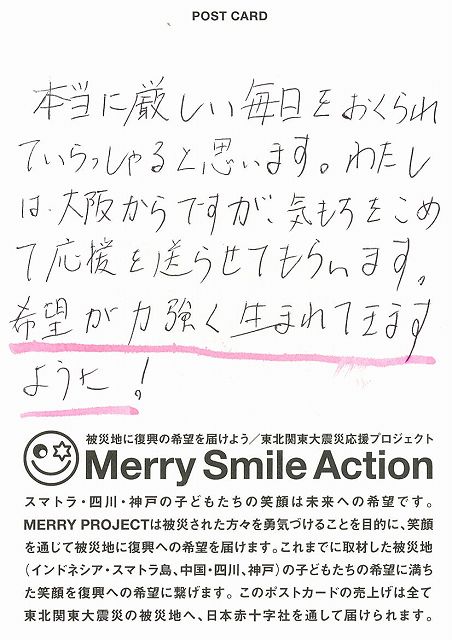 POST CARD
本当に厳しい毎日をおくられ
ていらっしゃると思います。わたし
は、大阪からですが、気もちをこめ
て応援を送らせてもらいます。
希望が力強く生まれてきます
ように!
被災地に復興の希望を届けよう／東北関東大震災応援プロジェクト
Merry Smile Action
スマトラ・四川・神戸の子どもたちの笑顔は未来への希望です。
MERRY PROJECTは被災された方々を勇気づけることを目的に、笑顔
を通じて被災地に復興への希望を届けます。これまでに取材した被災地
(インドネシア・スマトラ島、中国・四川、神戸)の子どもたちの希望に満ち
た笑顔を復興への希望に繋げます。このポストカードの売上げは全て
東北関東大震災の被災地へ、日本赤十字社を通して届けられます。